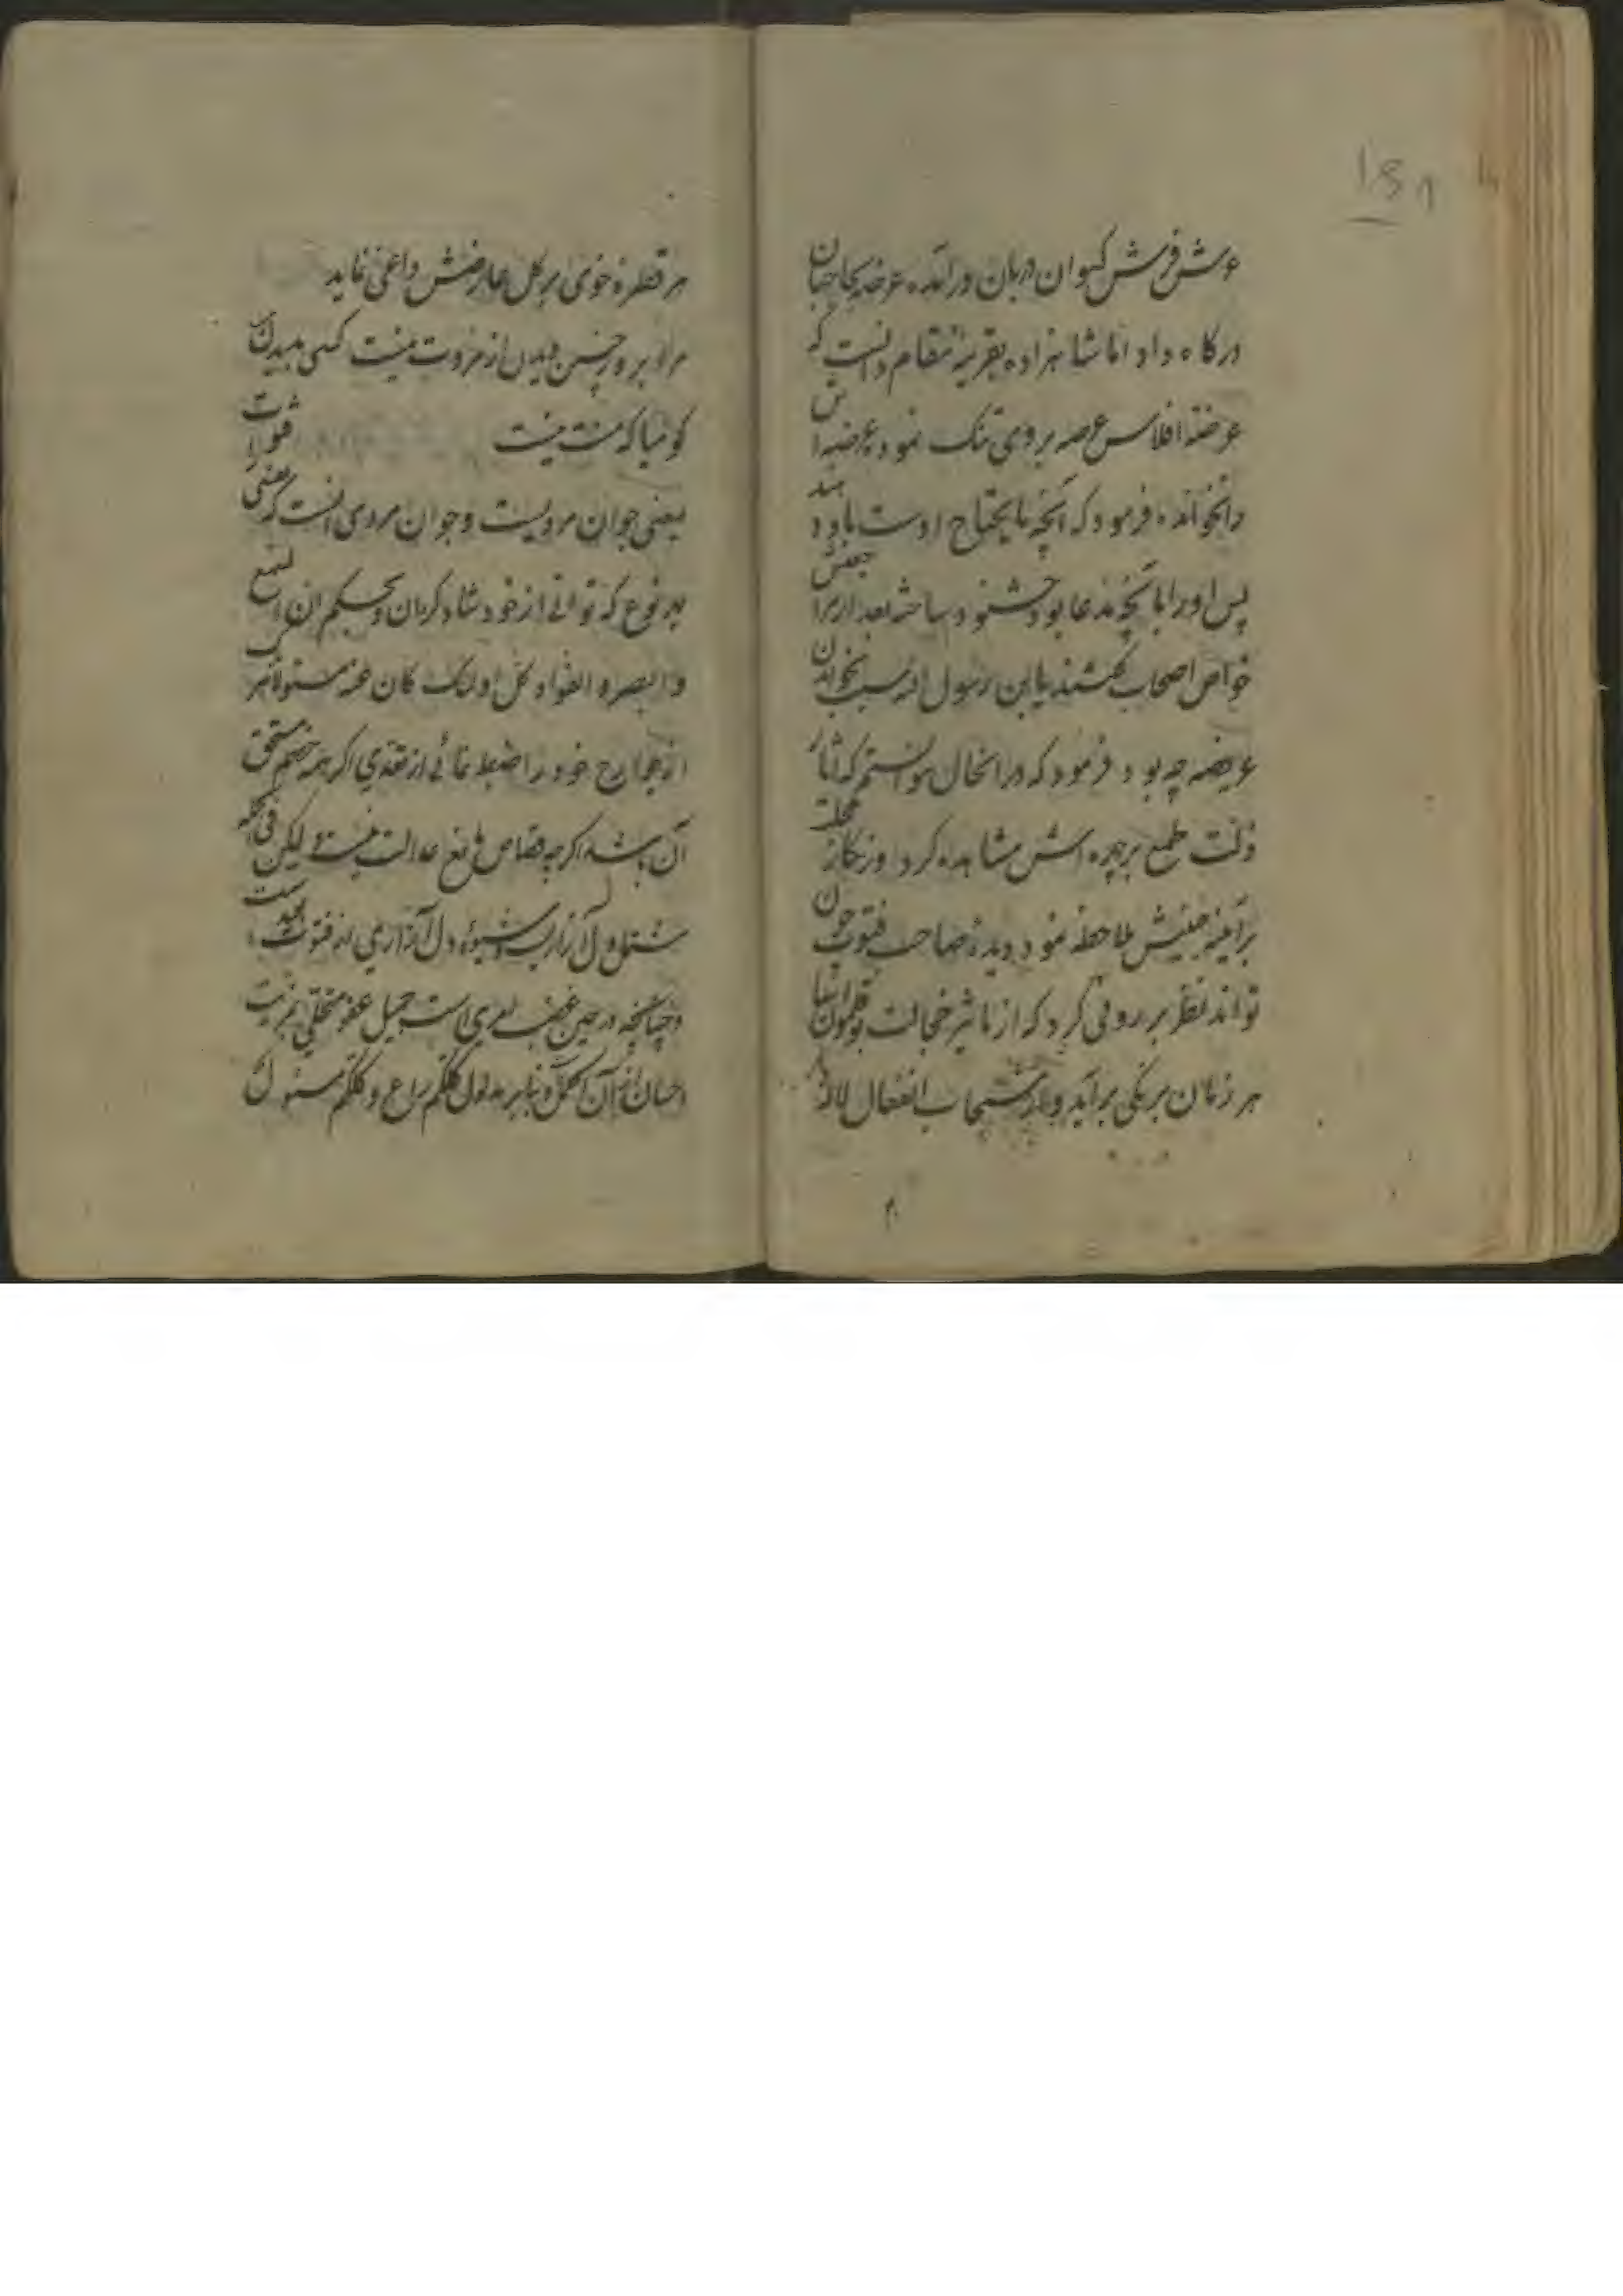 عرش فرش کیوان دربان درآمده عرضه بحاجبان
درکاه داد اما شاهزاده بقرینهٔ مقام دانست که
عرضهٔ افلاس عرصه بر وی تنک نموده عرضه اش
را نخوانده فرمود که آنچه مایحتاج اوست باو دهند
پس او را بآنچه مدعا بود خشنود ساخته بعد از مراجعتش
خواص اصحاب گفتند یا ابن رسول الله سبب نخواندن
عریضه چه بود فرمود که در آنحال نتوانستم که آثار
ذلت طمع بر چهره اش مشاهده کرد و زنکار خجلت
بر آینه جبینش ملاحظه نمود دیدهٔ صاحب فتوت چون
تواند نظر بر روئی کرد که از تاثیر خجالت بوقلمون آسا
هر زمان برنکی برآید و از سحاب انفعال لاله
هر قطره خوی بر کل عارضش داغی نماید
مرا بروز چنین دیدن از مروت نیست کسی بدیدن
کو میا که منت نیست فتوت
یعنی جوان مردیست و جوان مردی آنست که نفس را
بهر نوع که توانی از خود شاد کردان و بحکم ان السمع
و البصر و الفؤاد کل اولئک کان عنه مسئولا هر یک
از جوارح خود را ضبط نمائی از تعدی اگر چه خصم مستحق
آن باشد اگرچه قصاص مانع عدالت نیست و لیکن فی الجمله
دل آزاریست و شیوهٔ دل آزاری نه فتوتست
و چنانچه در حین غضب امری است جمیل عفو
احسان از آن اکمل و بنابر مدلول کلکم راع و کلکم مسئول